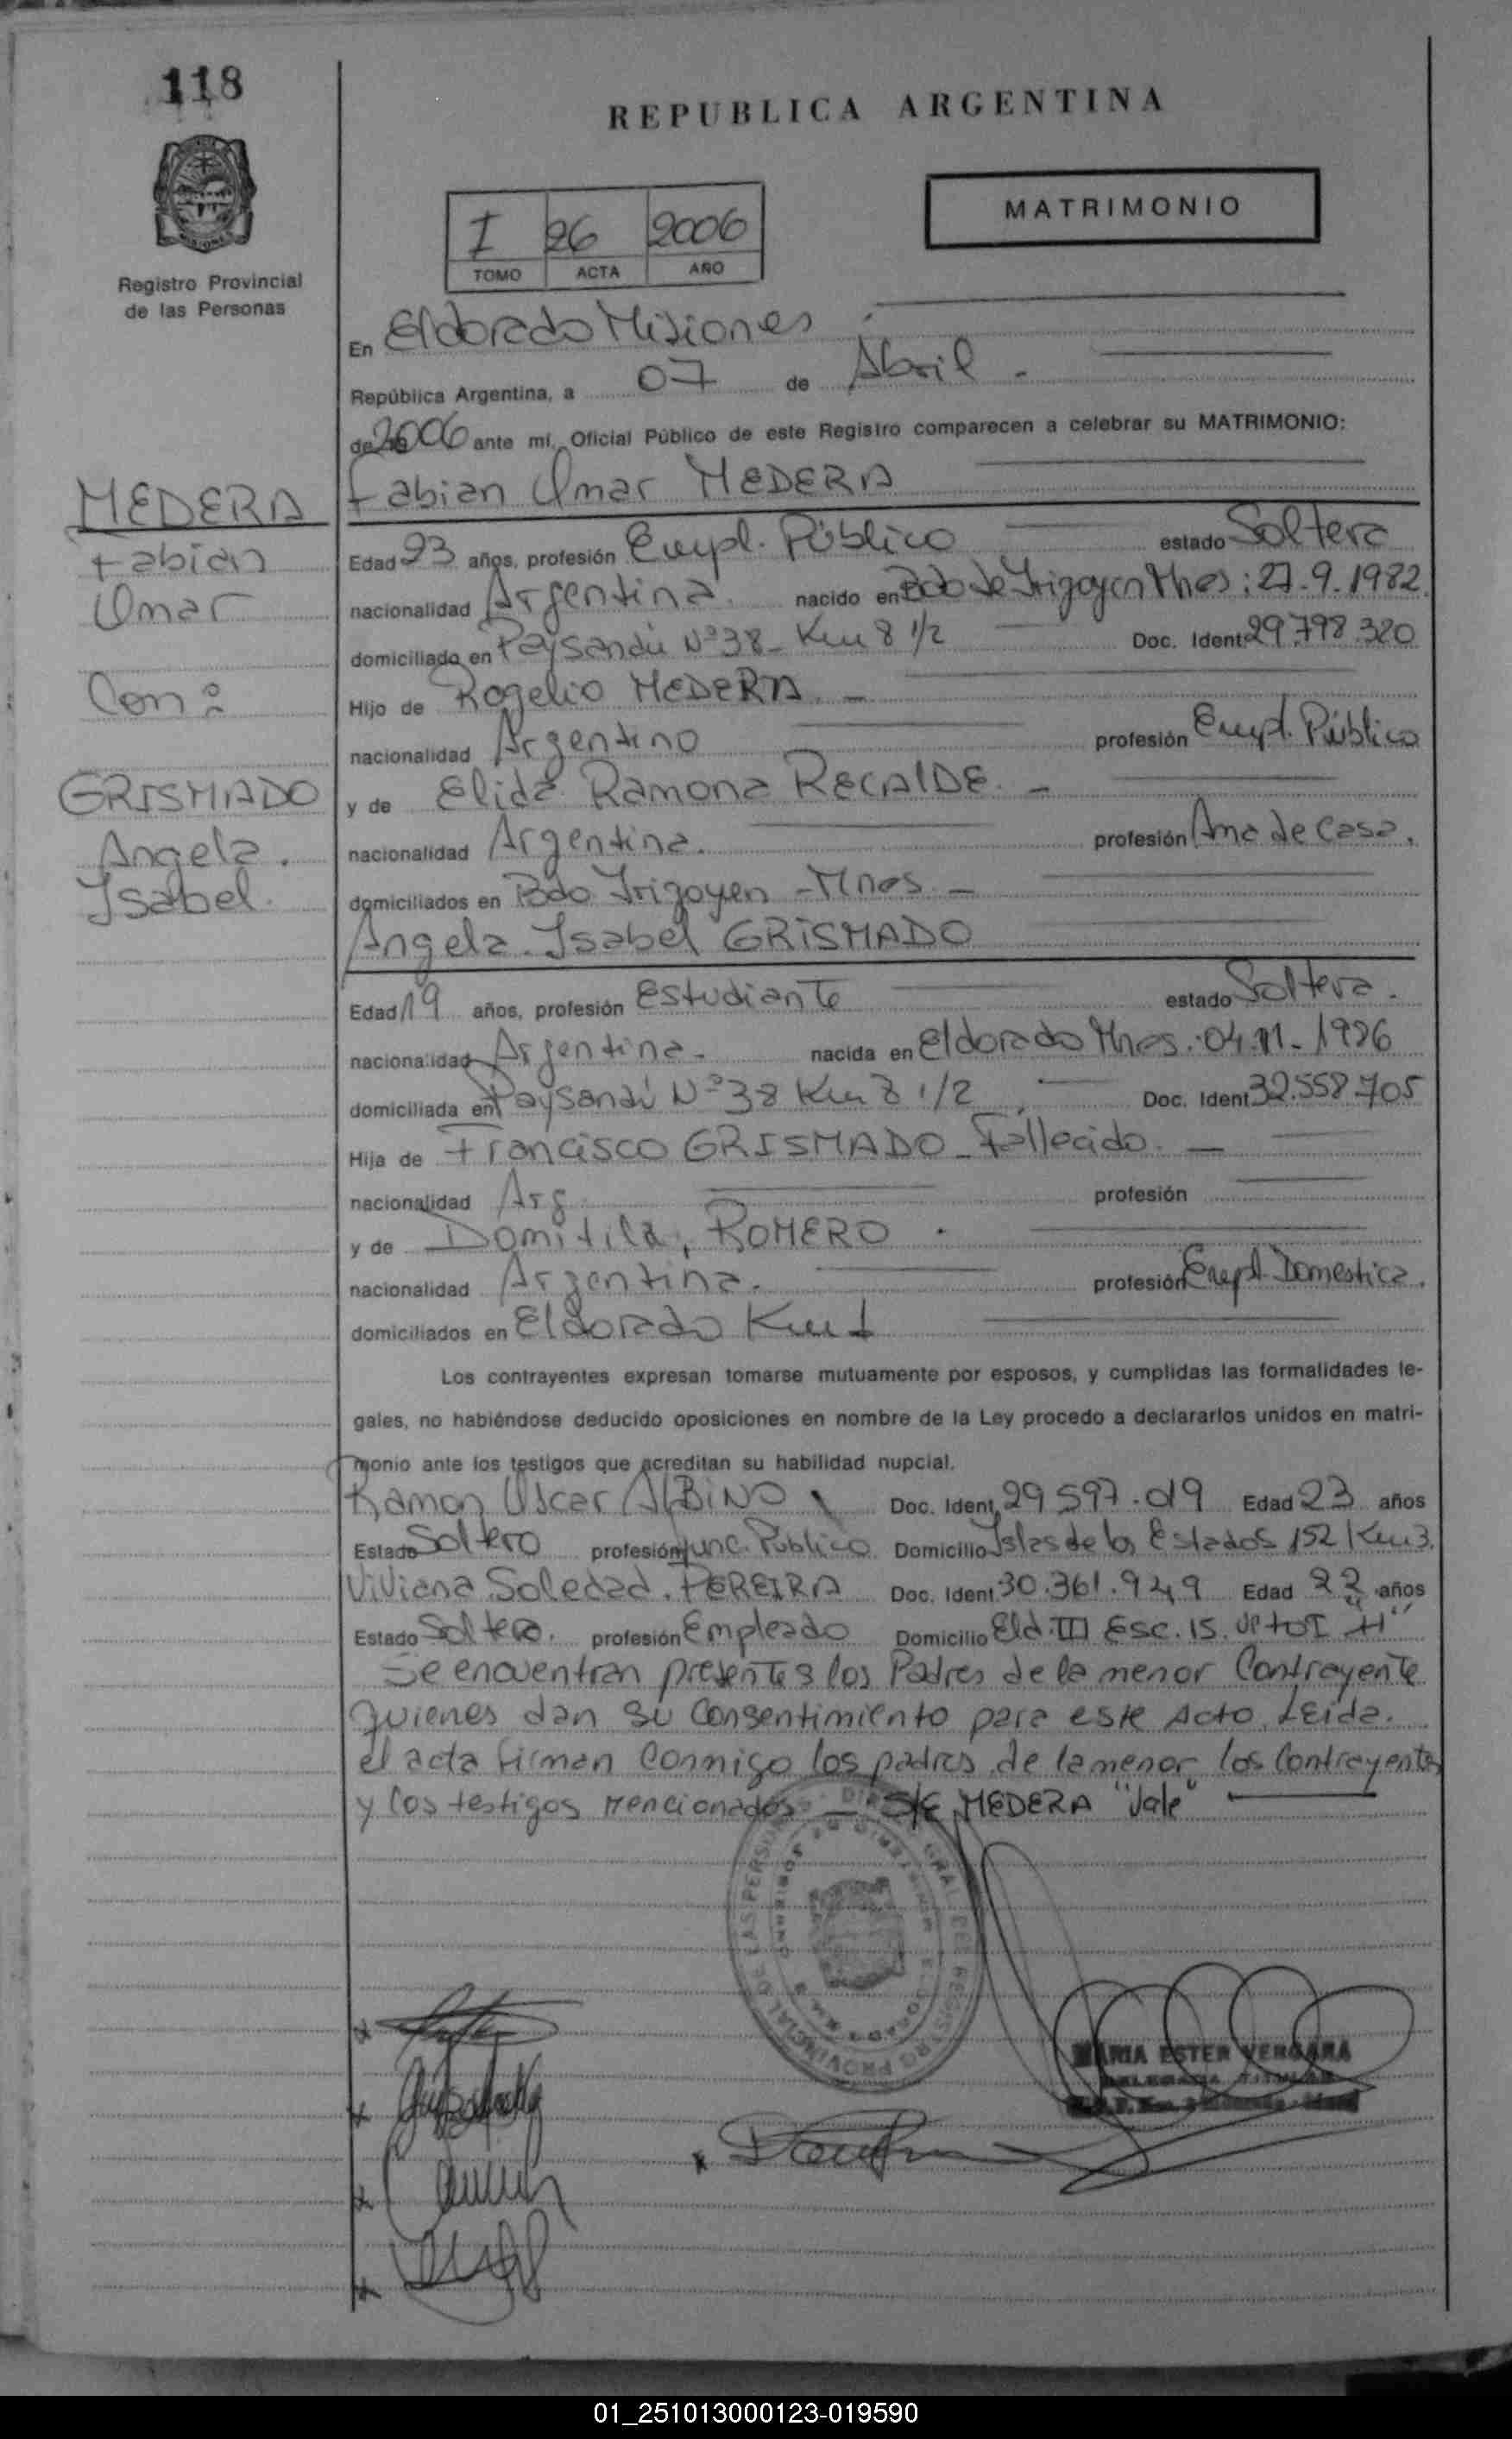 118
REPUBLICA ARGENTINA
MATRIMONIO
I 26 2006
TOMO ACTA AÑO
Registro Provincial
de las Personas
En Eldorado Misiones
República Argentina, a 07 de Abril -
de 2006 ante mí, Oficial Público de este Registro comparecen a celebrar su MATRIMONIO:
MEDERA
Fabian
Omar
Con:
GRISMADO
Angela.
Isabel.
Fabian Omar MEDERA
Edad 23 años, profesión Empl. Público estado Soltero
nacionalidad Argentina. nacido en Bdo de Irigoyen Mnes: 27.9.1982.
domiciliado en Paysandú Nº38- Km 8 1/2 Doc. Ident. 29.798.320
Hijo de Rogelio MEDERA. -
nacionalidad Argentino profesión Empl. Público
y de Elida Ramona RECALDE. -
nacionalidad Argentina. profesión Ama de Casa.
domiciliados en Bdo Irigoyen - Mnes -
Angela Isabel GRISMADO
Edad 19 años, profesión Estudiante estado Soltera.
nacionalidad Argentina. nacida en Eldorado Mnes. 04.11-1986
domiciliada en Paysandú Nº38 Km 8 1/2 Doc. Ident 32.558.705
Hija de Francisco GRISMADO - Fallecido. -
nacionalidad Arg profesión
y de Domitila, ROMERO .
nacionalidad Argentina. profesión Empl. Domestica.
domiciliados en Eldorado Km 1
Los contrayentes expresan tomarse mutuamente por esposos, y cumplidas las formalidades le-
gales, no habiéndose deducido oposiciones en nombre de la Ley procedo a declararlos unidos en matri-
monio ante los testigos que acreditan su habilidad nupcial.
Ramon Oscar ALBINO Doc. Ident. 29.597.019 Edad 23 años
Estado Soltero profesión func. Publico Domicilio Islas de los Estados 152 Km 3.
Viviana Soledad. PEREIRA Doc. Ident. 30.361.949 Edad 22 años
Estado Soltera. profesión Empleado Domicilio Eld. III Esc. 15. "H"
Se encuentran presentes los Padres de la menor Contrayente
quienes dan su Consentimiento para este Acto. Leida.
el acta firman Conmigo los padres de la menor los Contrayentes
y los testigos mencionados - S/E MEDERA "Vale"
MARIA ESTER VERGARA
DELEGADA TITULAR
01_251013000123-019590